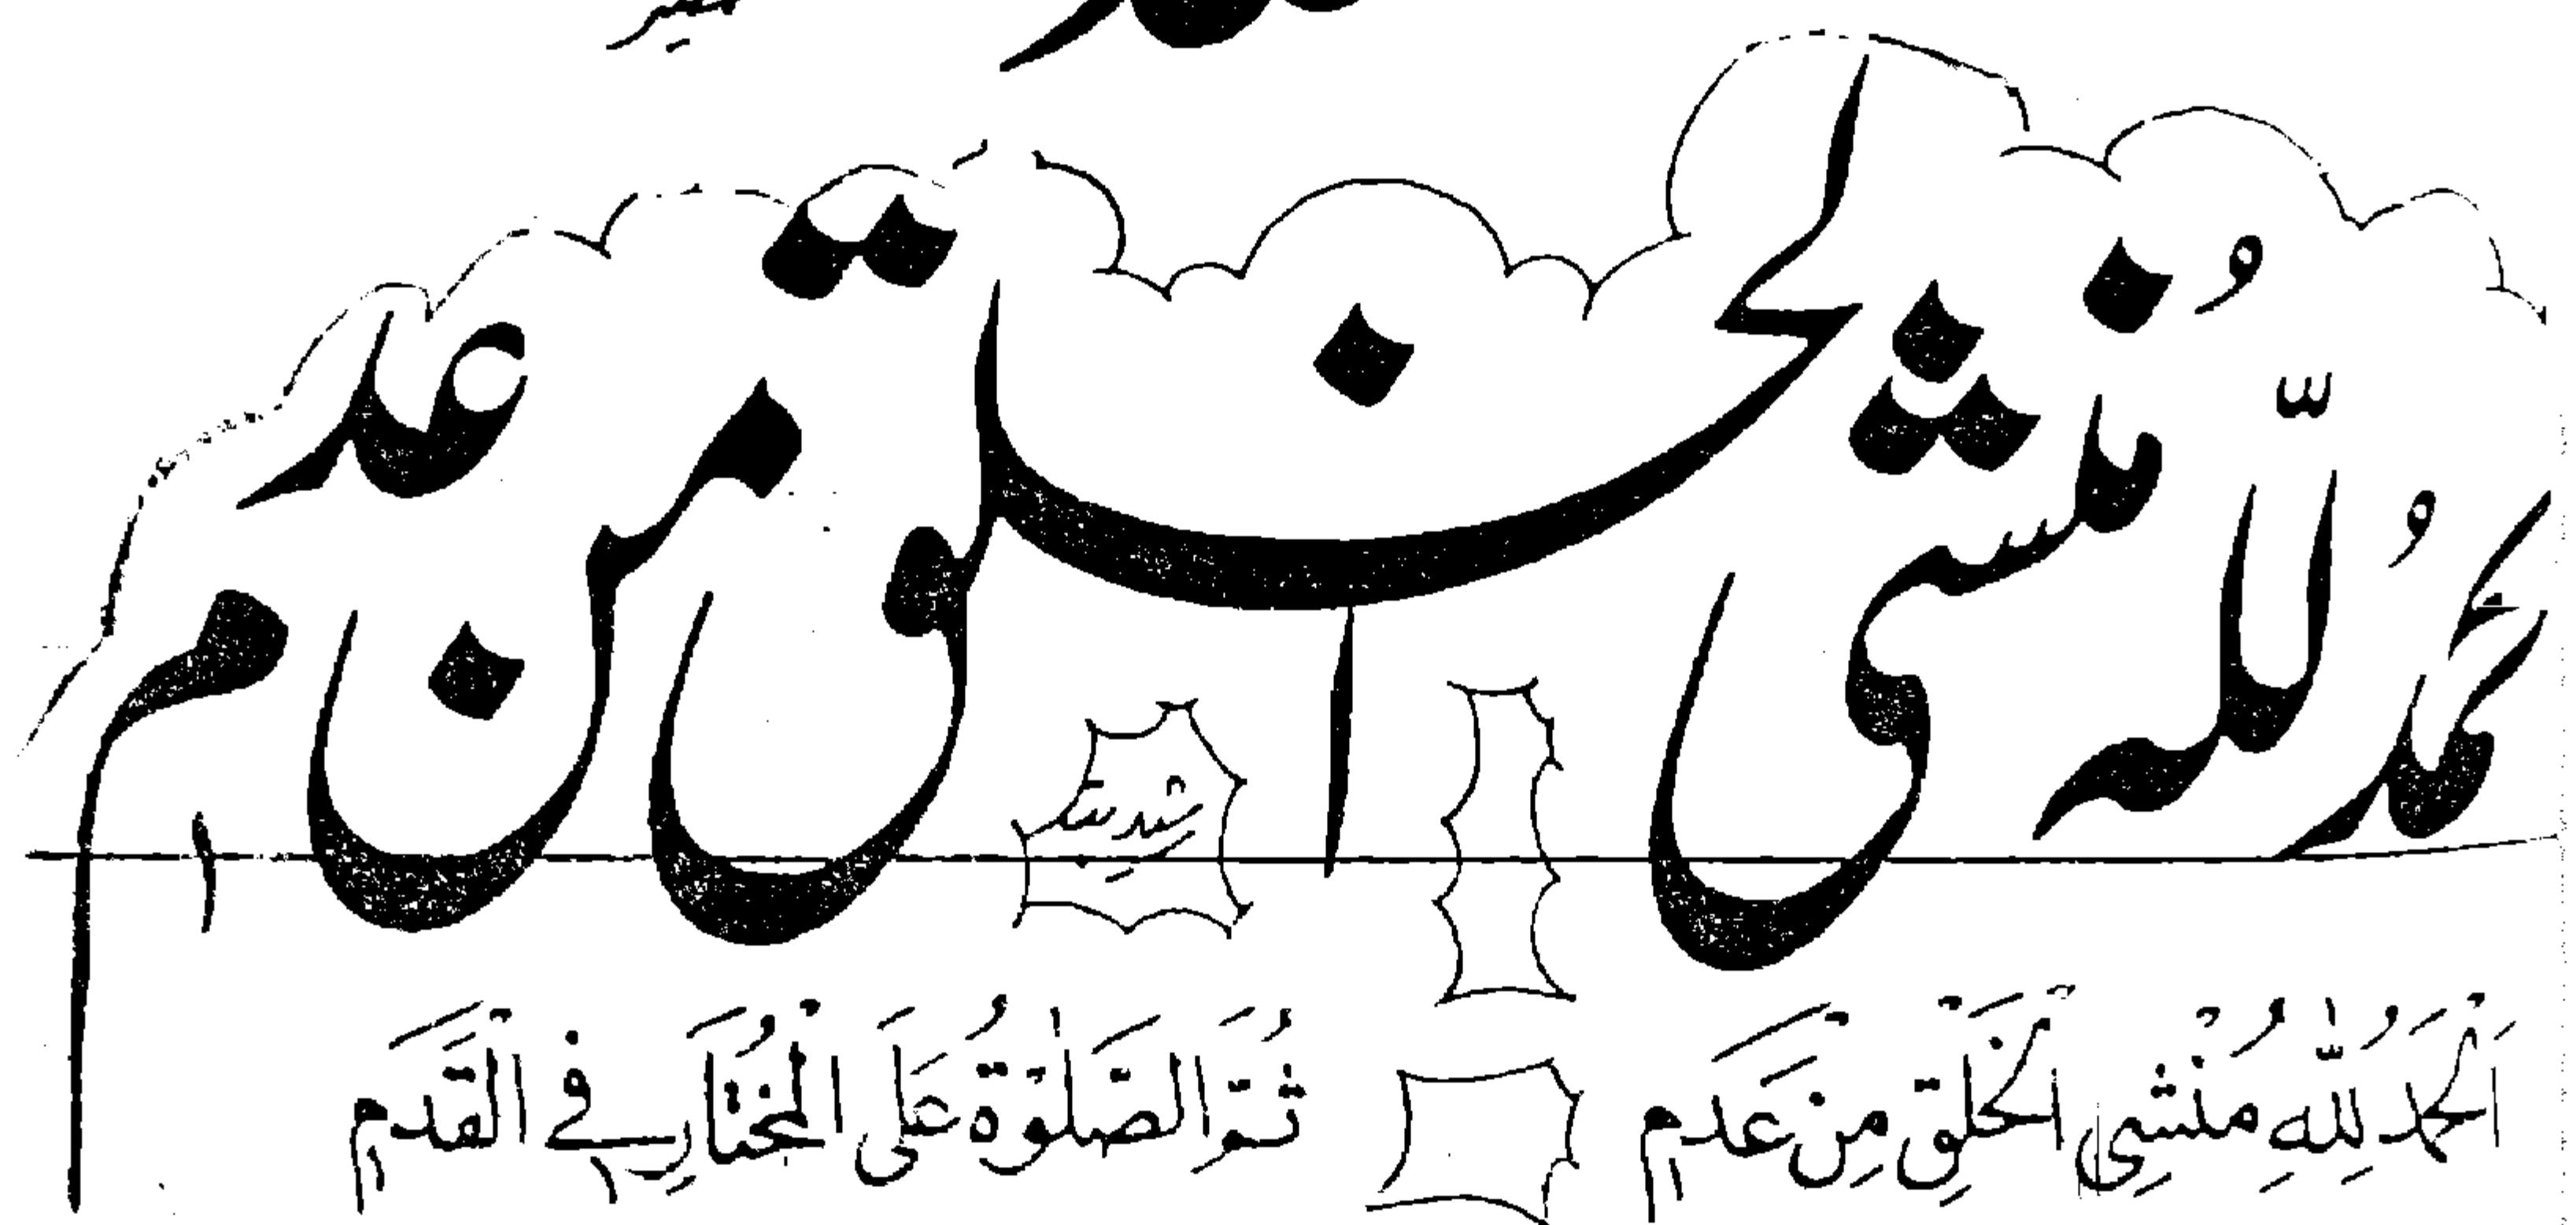 الحمد لله منشی الخلق من عدم
اَلْحَمْدُ لِلّٰهِ مُنْشِی الْخَلْقِ مِنْ عَدَمٍ ثُمَّ الصَّلٰوةُ عَلَی الْمُخْتَارِ فِی الْقَدَمِ